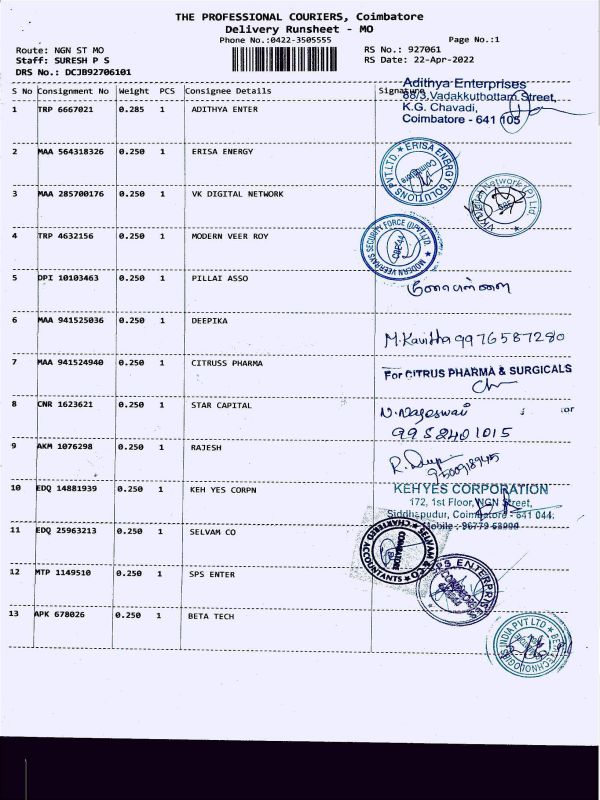 THE PROFESSIONAL COURIERS, Coimbatore
Delivery Runsheet - MO
Phone No.:0422-3505555
Page No.:1
Route: NGN ST MO
RS No.: 927061
Staff: SURESH P S
RS Date: 22-Apr-2022
DRS No.: DCJB92706101
S No Consignment No Weight PCS Consignee Details Signature
1 TRP 6667021 0.285 1 ADITHYA ENTER
Adithya Enterprises
88/3, Vadakkuthottam Street,
K.G. Chavadi,
Coimbatore - 641 105
2 MAA 564318326 0.250 1 ERISA ENERGY
ERISA ENERGY SOLUTIONS PVT.LTD.
3 MAA 285700176 0.250 1 VK DIGITAL NETWORK
Network (P) Ltd.
4 TRP 4632156 0.250 1 MODERN VEER ROY
MODERN VEERAYS SECURITY FORCE (I) PVT LTD.
5 DPI 10103463 0.250 1 PILLAI ASSO
6 MAA 941525036 0.250 1 DEEPIKA
M.Kavitha 9976587280
7 MAA 941524940 0.250 1 CITRUSS PHARMA
For CITRUS PHARMA & SURGICALS
8 CNR 1623621 0.250 1 STAR CAPITAL
N.Nageswari
9952401015
9 AKM 1076298 0.250 1 RAJESH
10 EDQ 14881939 0.250 1 KEH YES CORPN
KEHYES CORPORATION
172, 1st Floor, NGN Street,
Siddhapudur, Coimbatore - 641 044.
11 EDQ 25963213 0.250 1 SELVAM CO
SELVAM & CO
CHARTERED ACCOUNTANTS
COIMBATORE
12 MTP 1149510 0.250 1 SPS ENTER
SPS ENTERPRISES
13 APK 678026 0.250 1 BETA TECH
BETA TECHNOLOGIES INDIA PVT LTD